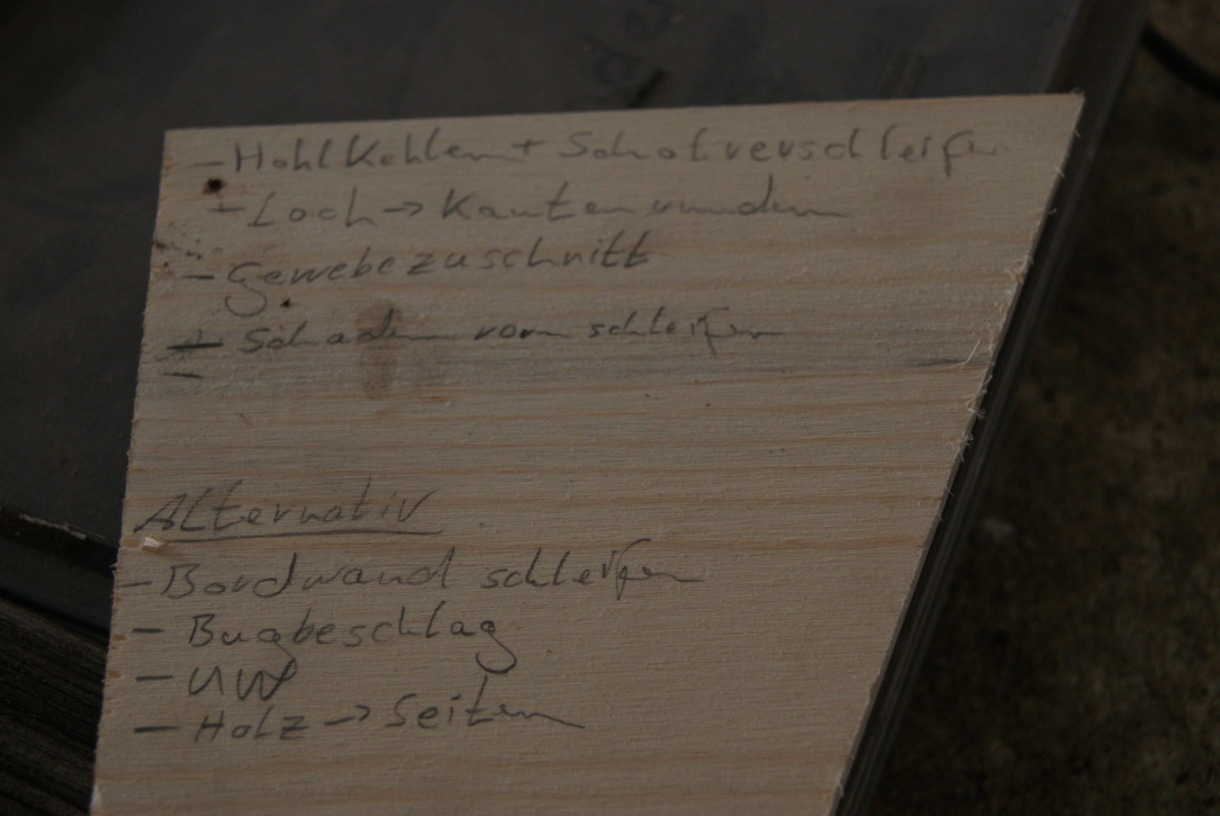 - Hohlkehlen + Schotverschleifen
- Loch -> Kanten runden
- Gewebezuschnitt
- Schaden vorn schleifen
-
Alternativ
- Bordwand schleifen
- Bugbeschlag
- UW
- Holz -> Seiten